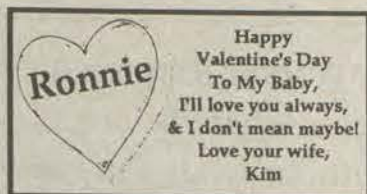 Ronnie
Happy
Valentine's Day
To My Baby,
I'll love you always,
& I don't mean maybe!
Love your wife,
Kim